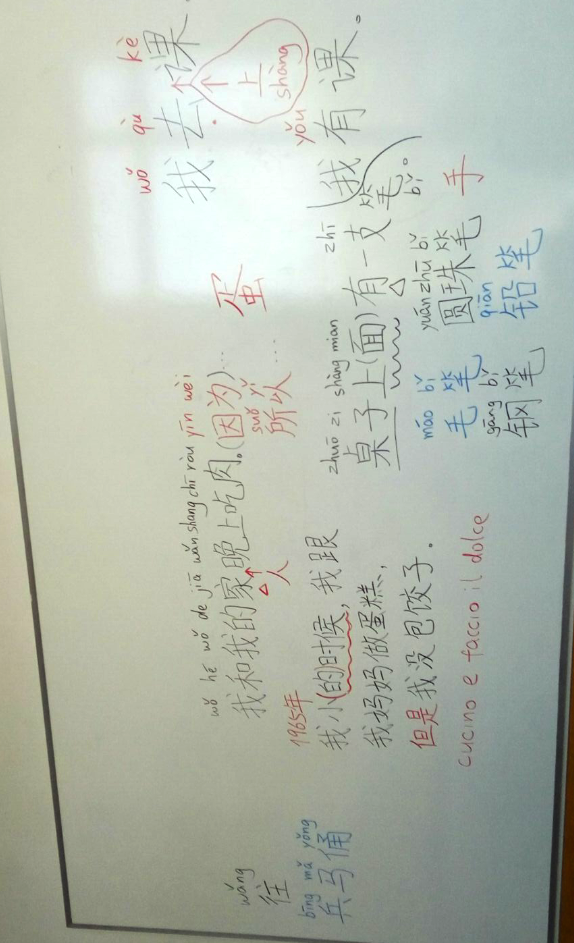 wǎng
往
bīng mǎ yǒng
兵马俑
wǒ hē wǒ de jiā wǎn shang chī ròu yīn wèi
我和我的家晚上吃肉。(因为)...
人
suǒ yǐ
所以...
蛋
1965年
我小(的时候, 我跟
我妈妈做蛋糕,
但是我没包饺子。
cucino e faccio il dolce
zhuō zi shàng mian zhī
桌子上(面)有一支笔。
bǐ
máo bǐ yuán zhū bǐ
毛笔 圆珠笔 手
gāng bǐ qiān
钢笔 铅笔
wǒ qù kè
我去课
上
shàng
yǒu
我有课。